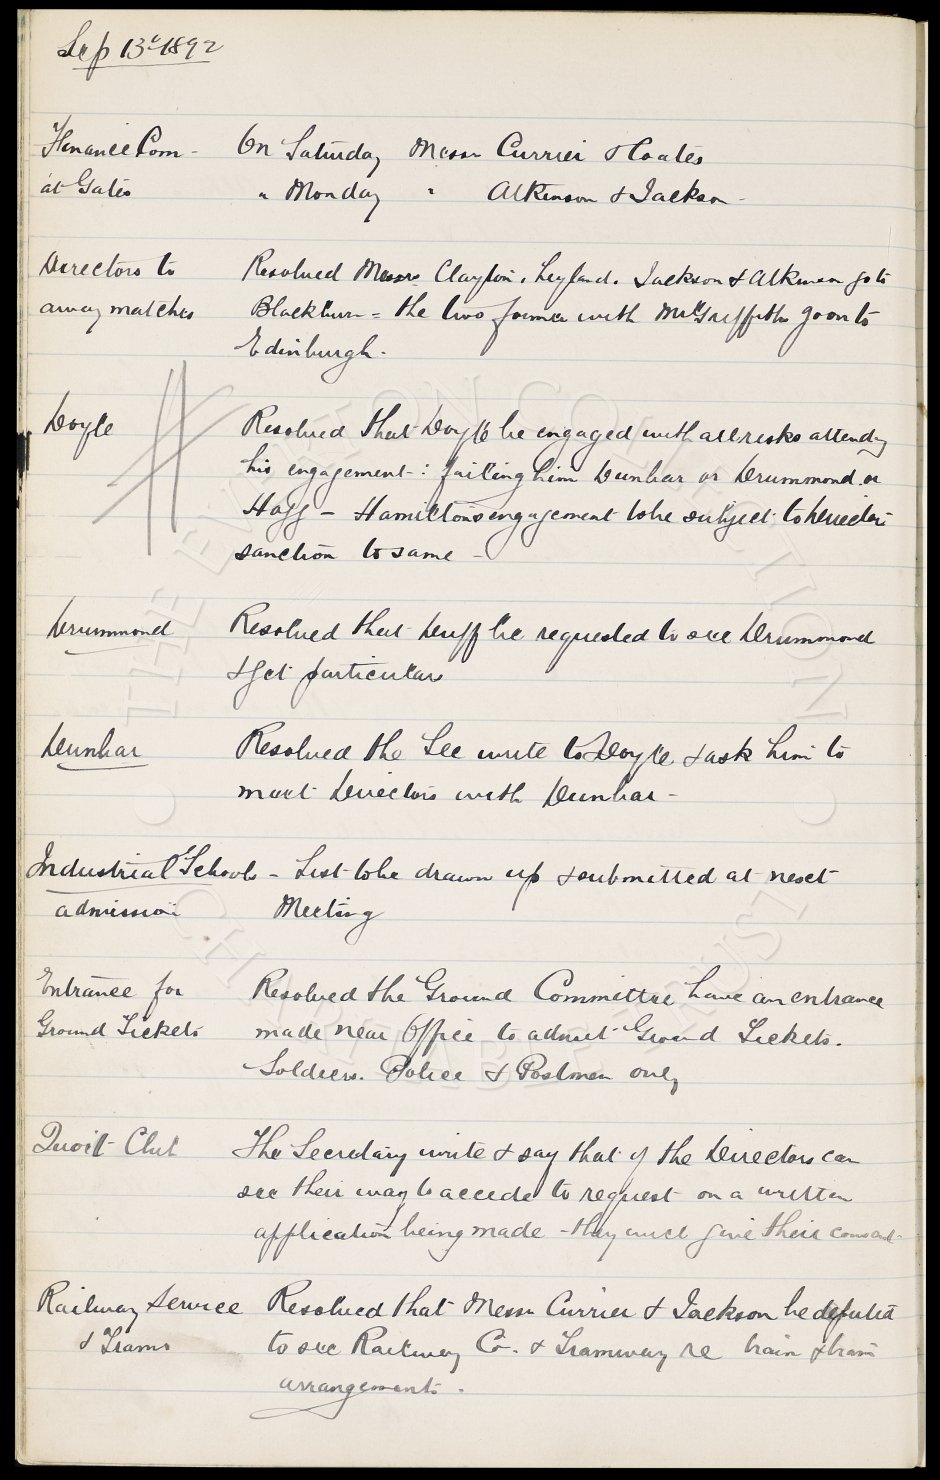 Sep 13th 1892
Finance Com - On Saturday Messrs Currier & Coates
at Gates " Monday " Atkinson & Jackson -
Directors to Resolved Messrs Clayton, Leyland, Jackson & Atkinson go to
away matches Blackburn = the two former with Mr Griffiths go on to
Edinburgh.
Doyle Resolved that Doyle be engaged with all risks attending
his engagement : failing him Dunbar or Drummond or
Hogg - Hamilton's engagement to be subject to Directors
sanction to same -
Drummond Resolved that Duff be requested to see Drummond
& get particulars
Dunbar Resolved the Sec write to Doyle & ask him to
meet Directors with Dunbar -
Industrial Schools - List to be drawn up & submitted at next
admission Meeting
Entrance for Resolved the Ground Committee have an entrance
Ground Tickets made near Office to admit Ground Tickets.
Soldiers. Police & Postmen only
Quoit Club The Secretary write & say that if the Directors can
see their way to accede to request on a written
application being made - they will give their consent -
Railway Service Resolved that Messrs Currier & Jackson be deputed
& Trams to see Railway Co. & Tramway re train & tram
arrangements.
THE EVERTON COLLECTION
CHARITABLE TRUST